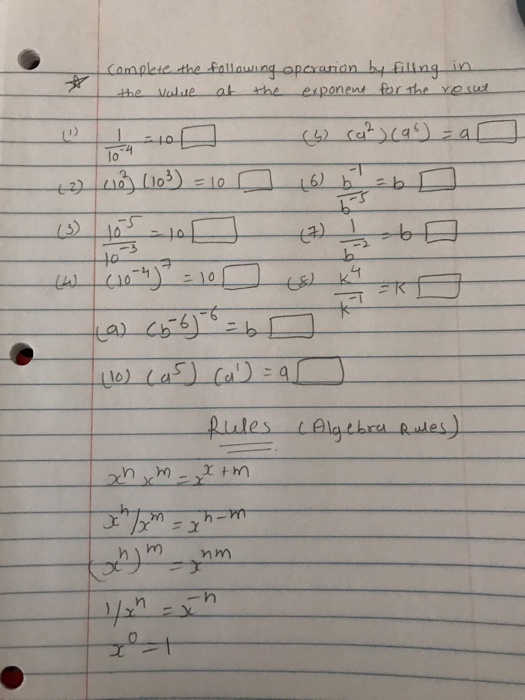 ☆ Complete the following operation by filling in
the value at the exponent for the result
(1) 1/10⁻⁴ = 10 □ (5) (a²)(a⁶) = a □
(2) (10²)(10³) = 10 □ (6) b⁻¹/b⁻⁵ = b □
(3) 10⁻⁵/10⁻³ = 10 □ (7) 1/b⁻² = b □
(4) (10⁻⁴)⁷ = 10 □ (8) k⁴/k⁻¹ = k □
(9) (b⁻⁶)⁻⁶ = b □
(10) (a⁵)(a¹) = a □
Rules (Algebra Rules)
xⁿ xᵐ = x^(x+m)
xⁿ/xᵐ = xⁿ⁻ᵐ
(xⁿ)ᵐ = xⁿᵐ
1/xⁿ = x⁻ⁿ
x⁰ = 1